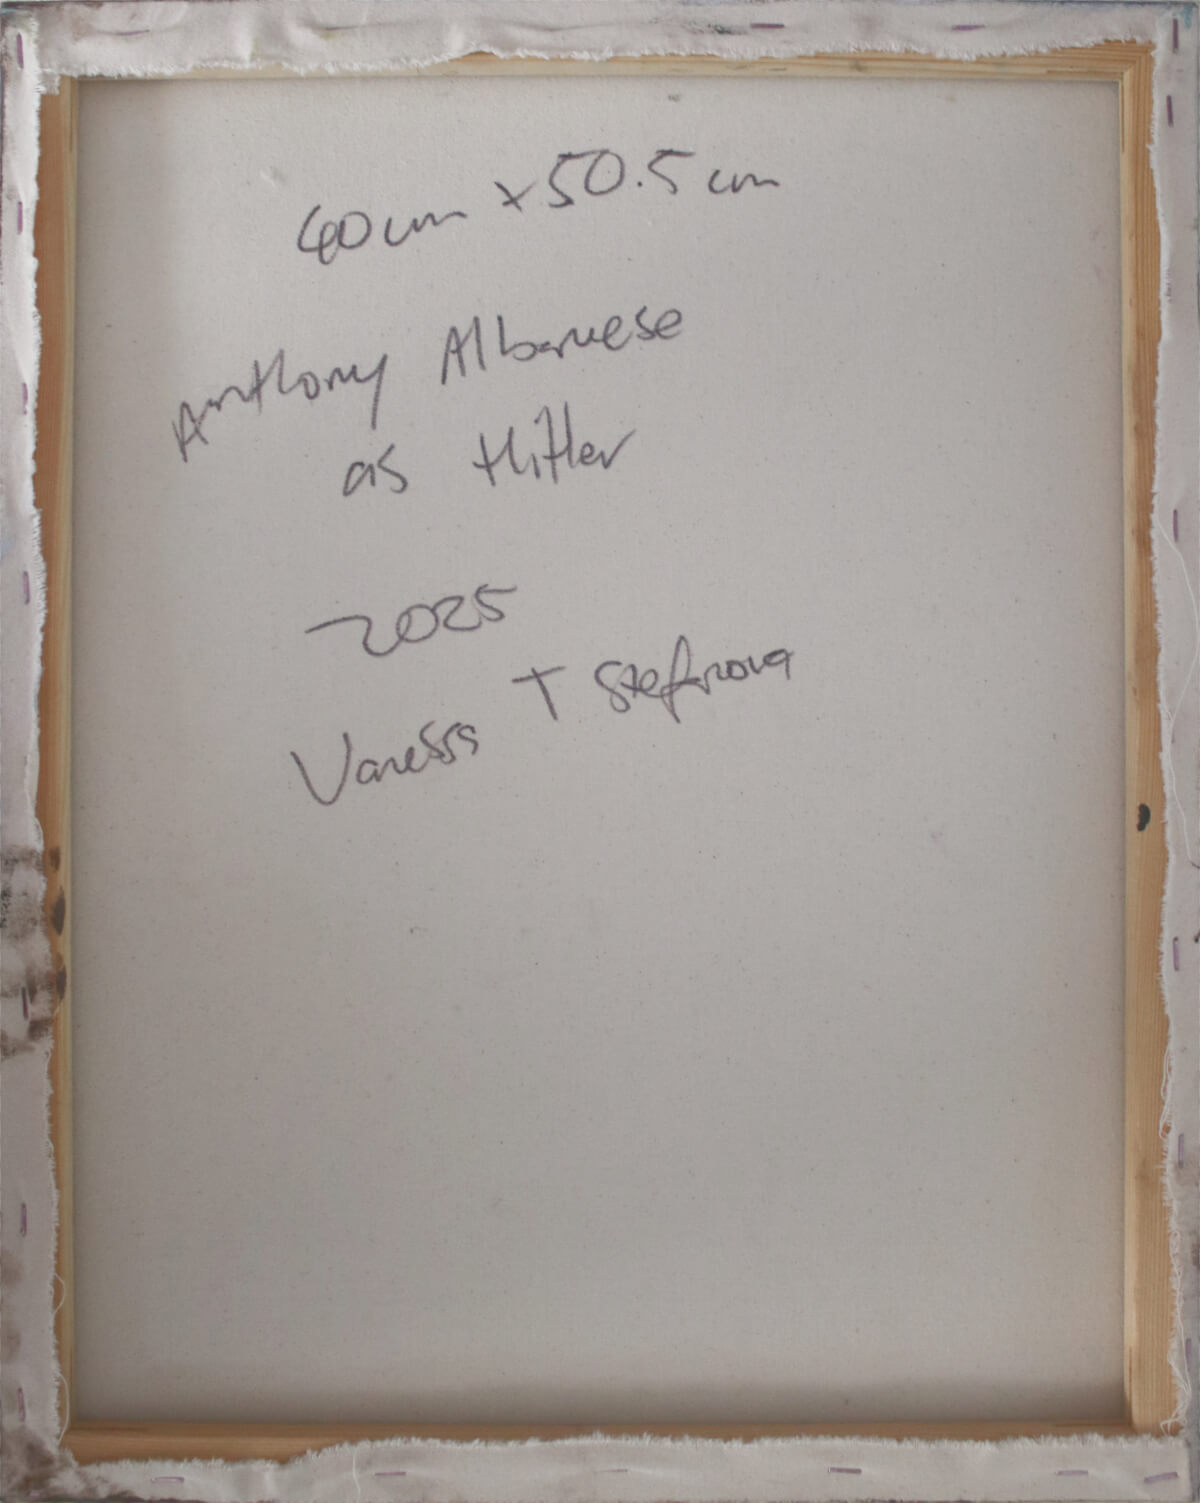 40cm x 50.5cm
Anthony Albanese
as Hitler
2025
Vanessa T Stefanova